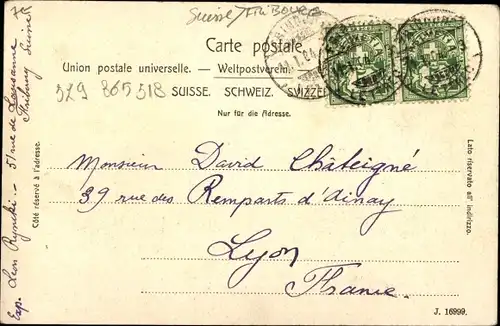 Suisse/FRIBOURG
Carte postale.
Union postale universelle. — Weltpostverein.
529 865518
SUISSE. SCHWEIZ. SVIZZE
Nur für die Adresse.
HELVETIA HELVETIA
Côté réservé à l'adresse.
Lato riservato all' indirizzo.
Monsieur David Châteigné
39 rue des Remparts d'Ainay
Lyon
France.
Exp. Léon Rynski — 51 rue de Lausanne
Fribourg Suisse
J. 16999.